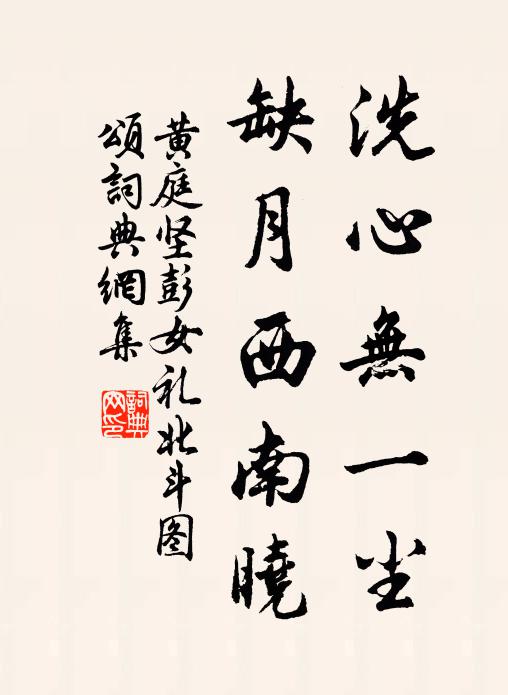 洗心無一尘
缺月西南曉
黄庭坚彭女礼北斗图
頌詞典網集
詞典网印